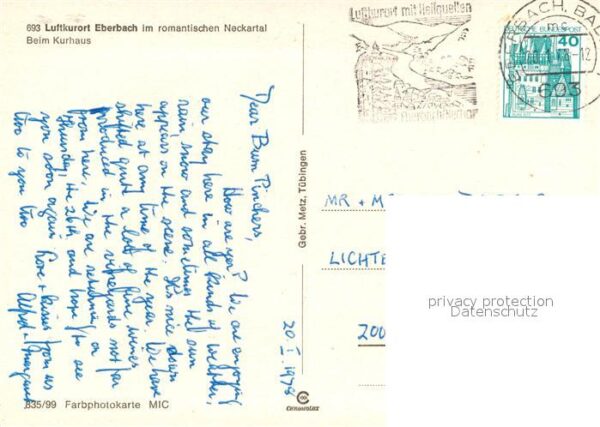 693 Luftkurort Eberbach im romantischen Neckartal
Beim Kurhaus
Luftkurort mit Heilquellen
EBERBACH, BAD
mc
-12
693
DEUTSCHE BUNDESPOST
40
Dear Bum Pinchers,
How are you? We are enjoying
our stay here in all kinds of weather,
rain, snow and sometimes the sun
appears on the scene. It's nice down
here at any time of the year. We have
shifted quite a lot of fine wines
produced in the vineyards not far
from here. We are returning on
Thursday, the 26th and hope to see
you soon again. Love + kisses from us
two to you two
Alfred + Margaret
20. I. 1978
Gebr. Metz, Tübingen
MR + M
LICHTE
200
privacy protection
Datenschutz
835/99 Farbphotokarte MIC
CHROMOLUX